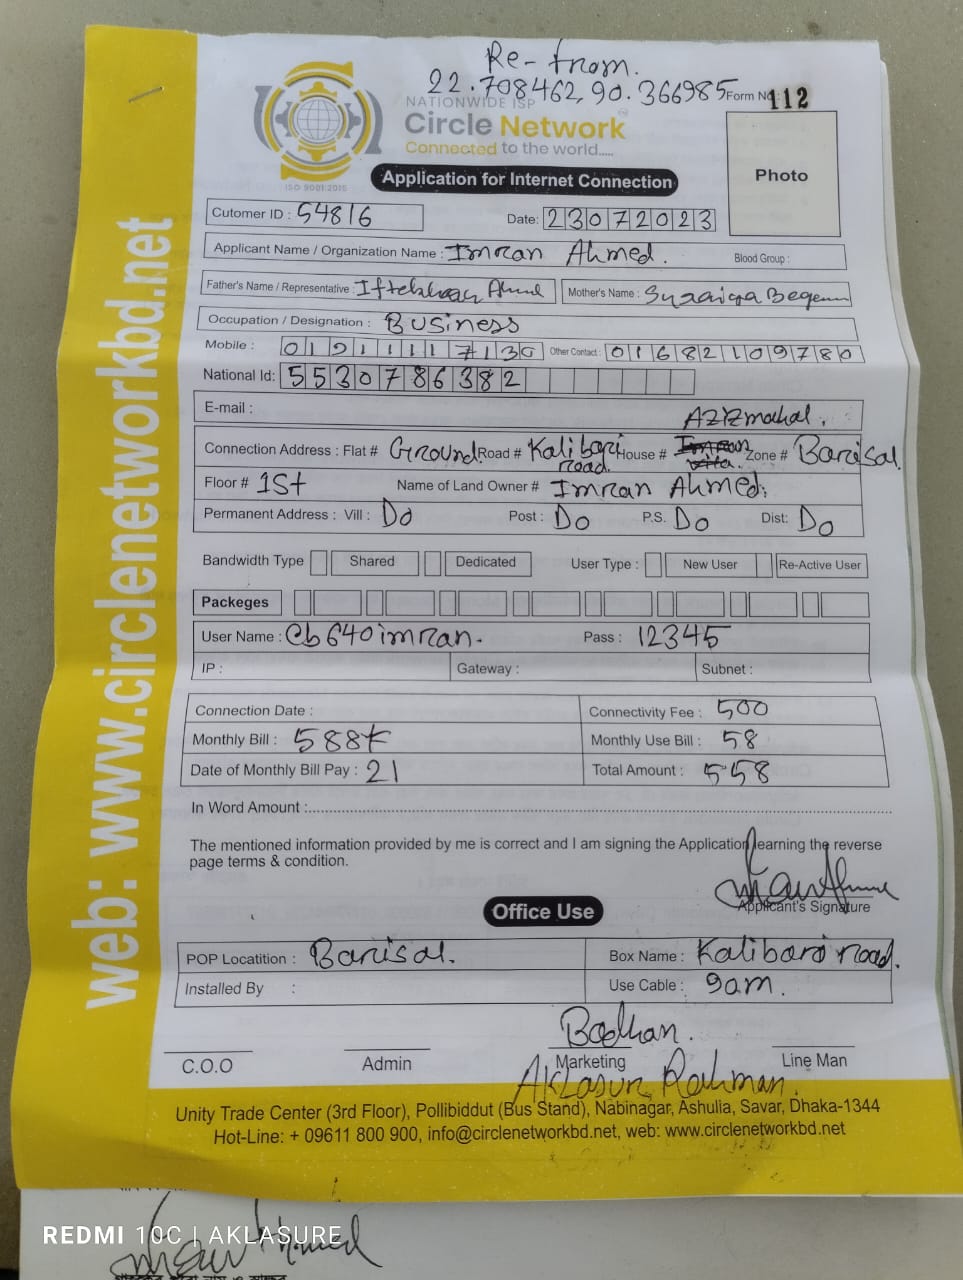 Re-from.
22.708462, 90.366985
Form No: 112
NATIONWIDE ISP
Circle Network
Connected to the world.....
ISO 9001:2015
Application for Internet Connection
Photo
Cutomer ID : 54816
Date: 23072023
Applicant Name / Organization Name : Imran Ahmed. Blood Group :
Father's Name / Representative : Mother's Name : Begem
Occupation / Designation : Business
Mobile : 01911117130 Other Contact : 01682109780
National Id: 5530786382
E-mail :
AZIZ mahal.
Connection Address : Flat # Ground Road # Kalibari road. House # Zone # Barisal.
Floor # 1st Name of Land Owner # Imran Ahmed.
Permanent Address : Vill : Do Post : Do P.S. Do Dist: Do
Bandwidth Type Shared Dedicated User Type : New User Re-Active User
Packeges
User Name : Cb640imran. Pass : 12345
IP : Gateway : Subnet :
Connection Date : Connectivity Fee : 500
Monthly Bill : 588 Monthly Use Bill : 58
Date of Monthly Bill Pay : 21 Total Amount : 558
In Word Amount :
The mentioned information provided by me is correct and I am signing the Application learning the reverse
page terms & condition.
Applicant's Signature
Office Use
POP Locatition : Barisal. Box Name : Kalibari road.
Installed By : Use Cable : 90m.
Bodhan.
C.O.O Admin Marketing Line Man
Aklasur Rahman.
Unity Trade Center (3rd Floor), Pollibiddut (Bus Stand), Nabinagar, Ashulia, Savar, Dhaka-1344
Hot-Line: + 09611 800 900, info@circlenetworkbd.net, web: www.circlenetworkbd.net
web: www.circlenetworkbd.net
REDMI 10C | AKLASURE